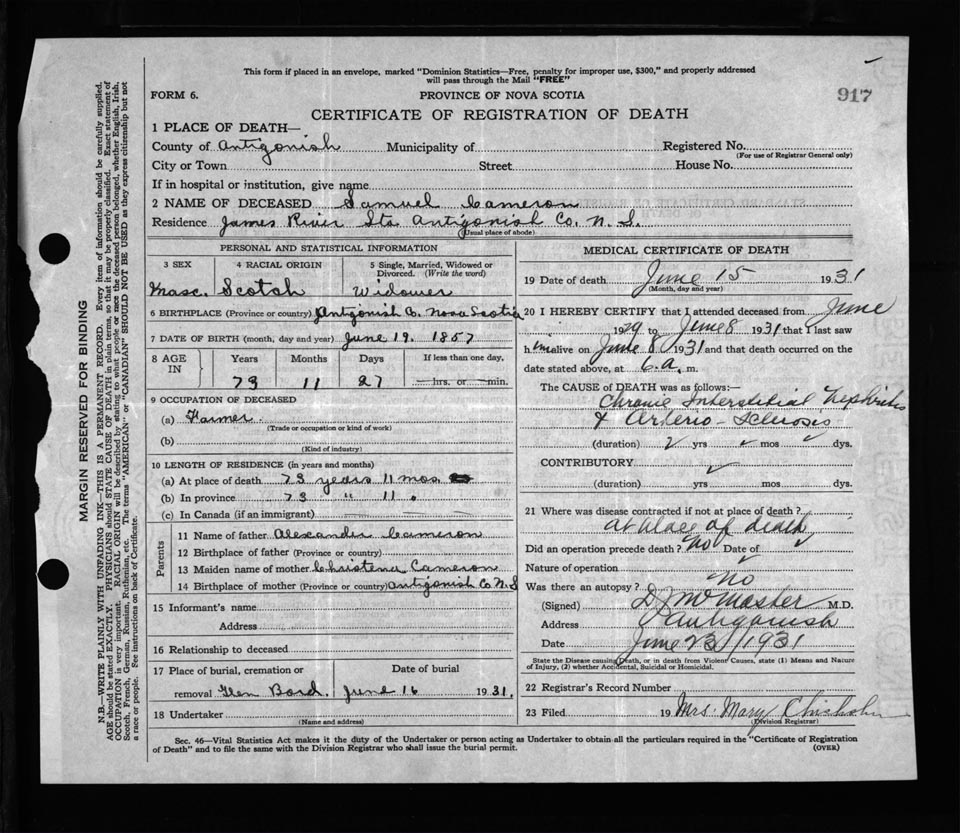 This form if placed in an envelope, marked "Dominion Statistics—Free, penalty for improper use, $300," and properly addressed
will pass through the Mail "FREE"
FORM 6.
PROVINCE OF NOVA SCOTIA
917
CERTIFICATE OF REGISTRATION OF DEATH
1 PLACE OF DEATH—
County of Antigonish Municipality of Registered No.
(For use of Registrar General only)
City or Town Street House No.
If in hospital or institution, give name
2 NAME OF DECEASED Samuel Cameron
Residence James River Sta Antigonish Co. N. S.
(usual place of abode)
PERSONAL AND STATISTICAL INFORMATION
3 SEX 4 RACIAL ORIGIN 5 Single, Married, Widowed or Divorced. (Write the word)
Masc. Scotch Widower
6 BIRTHPLACE (Province or country) Antigonish Co. Nova Scotia
7 DATE OF BIRTH (month, day and year) June 19. 1857
8 AGE IN Years Months Days If less than one day,
73 11 27 hrs. or min.
9 OCCUPATION OF DECEASED
(a) Farmer.
(Trade or occupation or kind of work)
(b)
(Kind of industry)
10 LENGTH OF RESIDENCE (in years and months)
(a) At place of death 73 years 11 mos.
(b) In province 73 " 11 .
(c) In Canada (if an immigrant)
Parents
11 Name of father Alexander Cameron
12 Birthplace of father (Province or country)
13 Maiden name of mother Christena Cameron
14 Birthplace of mother (Province or country) Antigonish Co N.S
15 Informant's name
Address
16 Relationship to deceased
17 Place of burial, cremation or Date of burial
removal Glen Bard. June 16 1931.
18 Undertaker
(Name and address)
MEDICAL CERTIFICATE OF DEATH
19 Date of death June 15 1931
(Month, day and year)
20 I HEREBY CERTIFY that I attended deceased from June
1929 to June 8 1931 that I last saw
him alive on June 8 1931 and that death occurred on the
date stated above, at 6.a. m.
The CAUSE of DEATH was as follows:—
Chronic Interstitial Nephritis
& Arterio-Sclerosis
(duration) 2 yrs mos dys.
CONTRIBUTORY
(duration) yrs mos dys.
21 Where was disease contracted if not at place of death?
at place of death
Did an operation precede death? No Date of
Nature of operation
Was there an autopsy? No
(Signed) D J McMaster M.D.
Address Antigonish
Date June 23/1931
State the Disease causing Death, or in death from Violent Causes, state (1) Means and Nature
of Injury, (2) whether Accidental, Suicidal or Homicidal.
22 Registrar's Record Number
23 Filed 19 Mrs. Mary Chisholm
(Division Registrar)
Sec. 46—Vital Statistics Act makes it the duty of the Undertaker or person acting as Undertaker to obtain all the particulars required in the "Certificate of Registration
of Death" and to file the same with the Division Registrar who shall issue the burial permit.
(OVER)
MARGIN RESERVED FOR BINDING
N.B.—WRITE PLAINLY WITH UNFADING INK—THIS IS A PERMANENT RECORD. Every item of information should be carefully supplied.
AGE should be stated EXACTLY. PHYSICIANS should STATE CAUSE OF DEATH in plain terms, so that it may be properly classified. Exact statement of
OCCUPATION is very important. RACIAL ORIGIN will be described by stating to what people or race the deceased person belonged, whether English, Irish,
Scotch, French, German, Russian, Ruthenian, etc. The terms "AMERICAN" or "CANADIAN" SHOULD NOT BE USED as they express citizenship but not
a race or people. See instructions on back of Certificate.